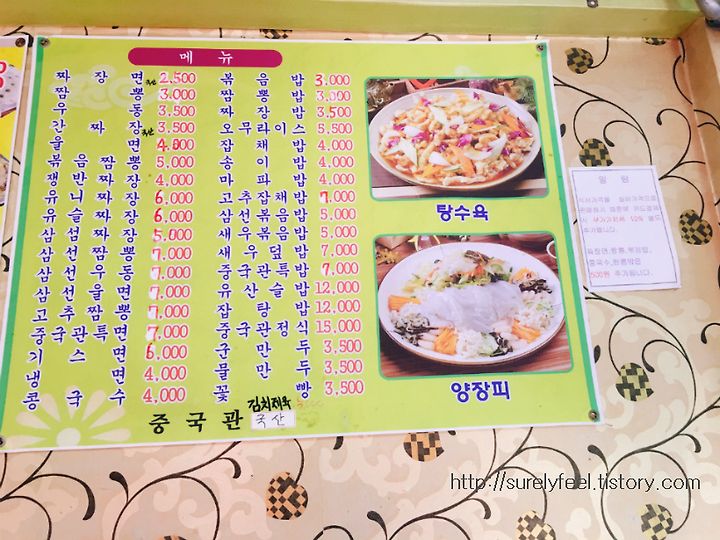 메뉴
짜장면 2,500
짬뽕 3,000
우동 3,500
간짜장 3,500
울면 4,000
볶음짬뽕 5,000
쟁반짜장 4,000
유니짜장 6,000
유슬짜장 6,000
삼섬짜장 5,000
삼선짬뽕 7,000
삼선우동 7,000
삼선울면 7,000
고추짬뽕 7,000
중국관특면 7,000
기스면 6,000
냉면 4,000
콩국수 4,000
볶음밥 3,000
짬뽕밥 3,000
짜장밥 3,500
오무라이스 5,500
잡채밥 4,000
송이밥 4,000
마파밥 4,000
고추잡채밥 7,000
삼선볶음밥 5,000
새우볶음밥 5,000
새우덮밥 7,000
중국관특밥 7,000
유산슬밥 12,000
잡탕밥 12,000
중국관정식 15,000
군만두 3,500
물만두 3,500
꽃빵 3,500
중국관
국산
탕수육
양장피
알림
500원 추가됩니다.
http://surelyfeel.tistory.com